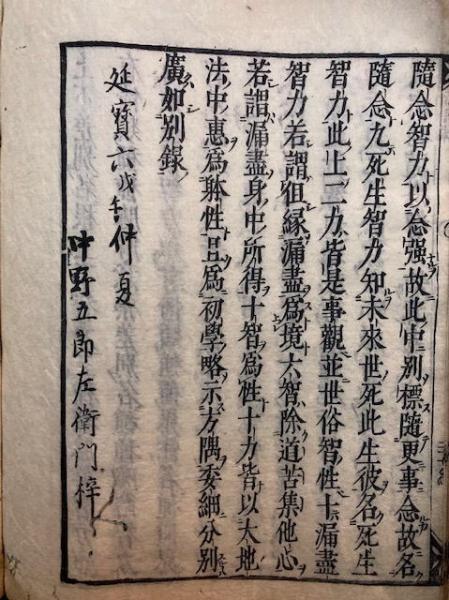 隨念智力以念强故此中別標隨更事念故名
隨念九死生智力知未來世死此生彼名死生
智力此上二力皆是事觀並世俗智性十漏盡
智力若謂但緣漏盡爲境六智除道苦集他心
若謂漏盡身中所得十智爲性十力皆以大地
法中惠爲躰性且爲初學略示方隅委細分别
廣如别錄
延寶六戊午仲夏
中野五郎左衛門梓